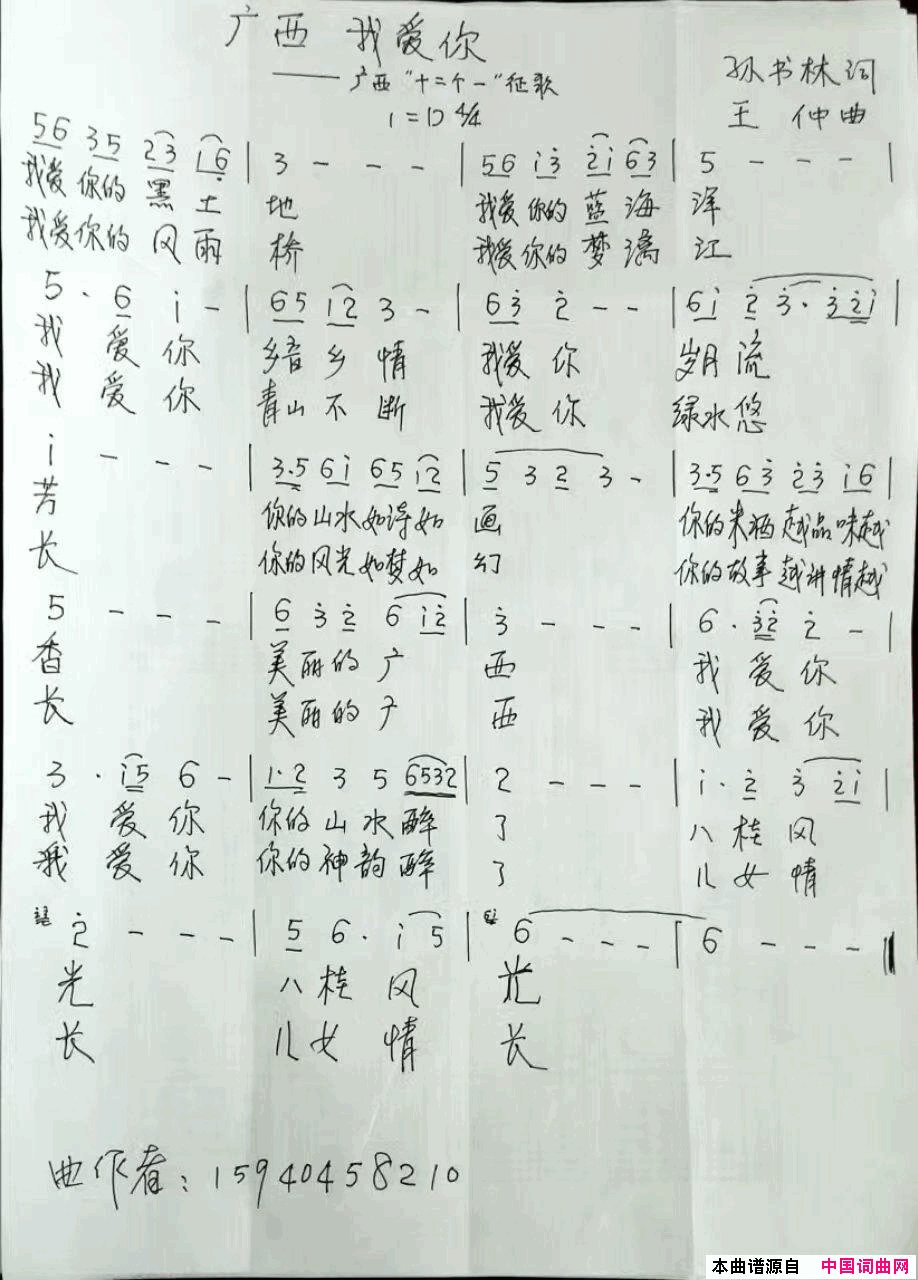 广西 我爱你
——广西“十二个一”征歌
孙书林词
1=D 4/4
王 仲曲
56 35 23 i6 | 3 - - - | 56 i3 2i 63 | 5 - - - |
我爱 你的 黑 土 地 我爱 你的 蓝 海 洋
我爱 你的 风 雨 桥 我爱 你的 梦 漓 江
5 · 6 i - | 65 i2 3 - | 63 2 - - | 6i 2 3 · 32i |
我 爱 你 乡音 乡 情 我爱 你 岁月 流
我 爱 你 青山 不 断 我爱 你 绿水 悠
i - - - | 3·5 6i 65 i2 | 5 3 2 3 - | 3·5 63 23 i6 |
芳 你的 山水 如诗 如 画 你的 米酒 越品 味越
长 你的 风光 如梦 如 幻 你的 故事 越讲 情越
5 - - - | 6 3 2 6 i2 | 3 - - - | 6 · 32 2 - |
香 美丽的 广 西 我 爱 你
长 美丽的 广 西 我 爱 你
3 · i5 6 - | 1·2 3 5 6532 | 2 - - - | i · 2 3 2i |
我 爱 你 你的 山 水 醉 了 八 桂 风
我 爱 你 你的 神 韵 醉 了 儿 女 情
2 - - - | 5 6 · i 5 | 6 - - - | 6 - - - ‖
光 八 桂 风 光
长 儿 女 情 长
曲作者：15940458210
本曲谱源自 中国词曲网